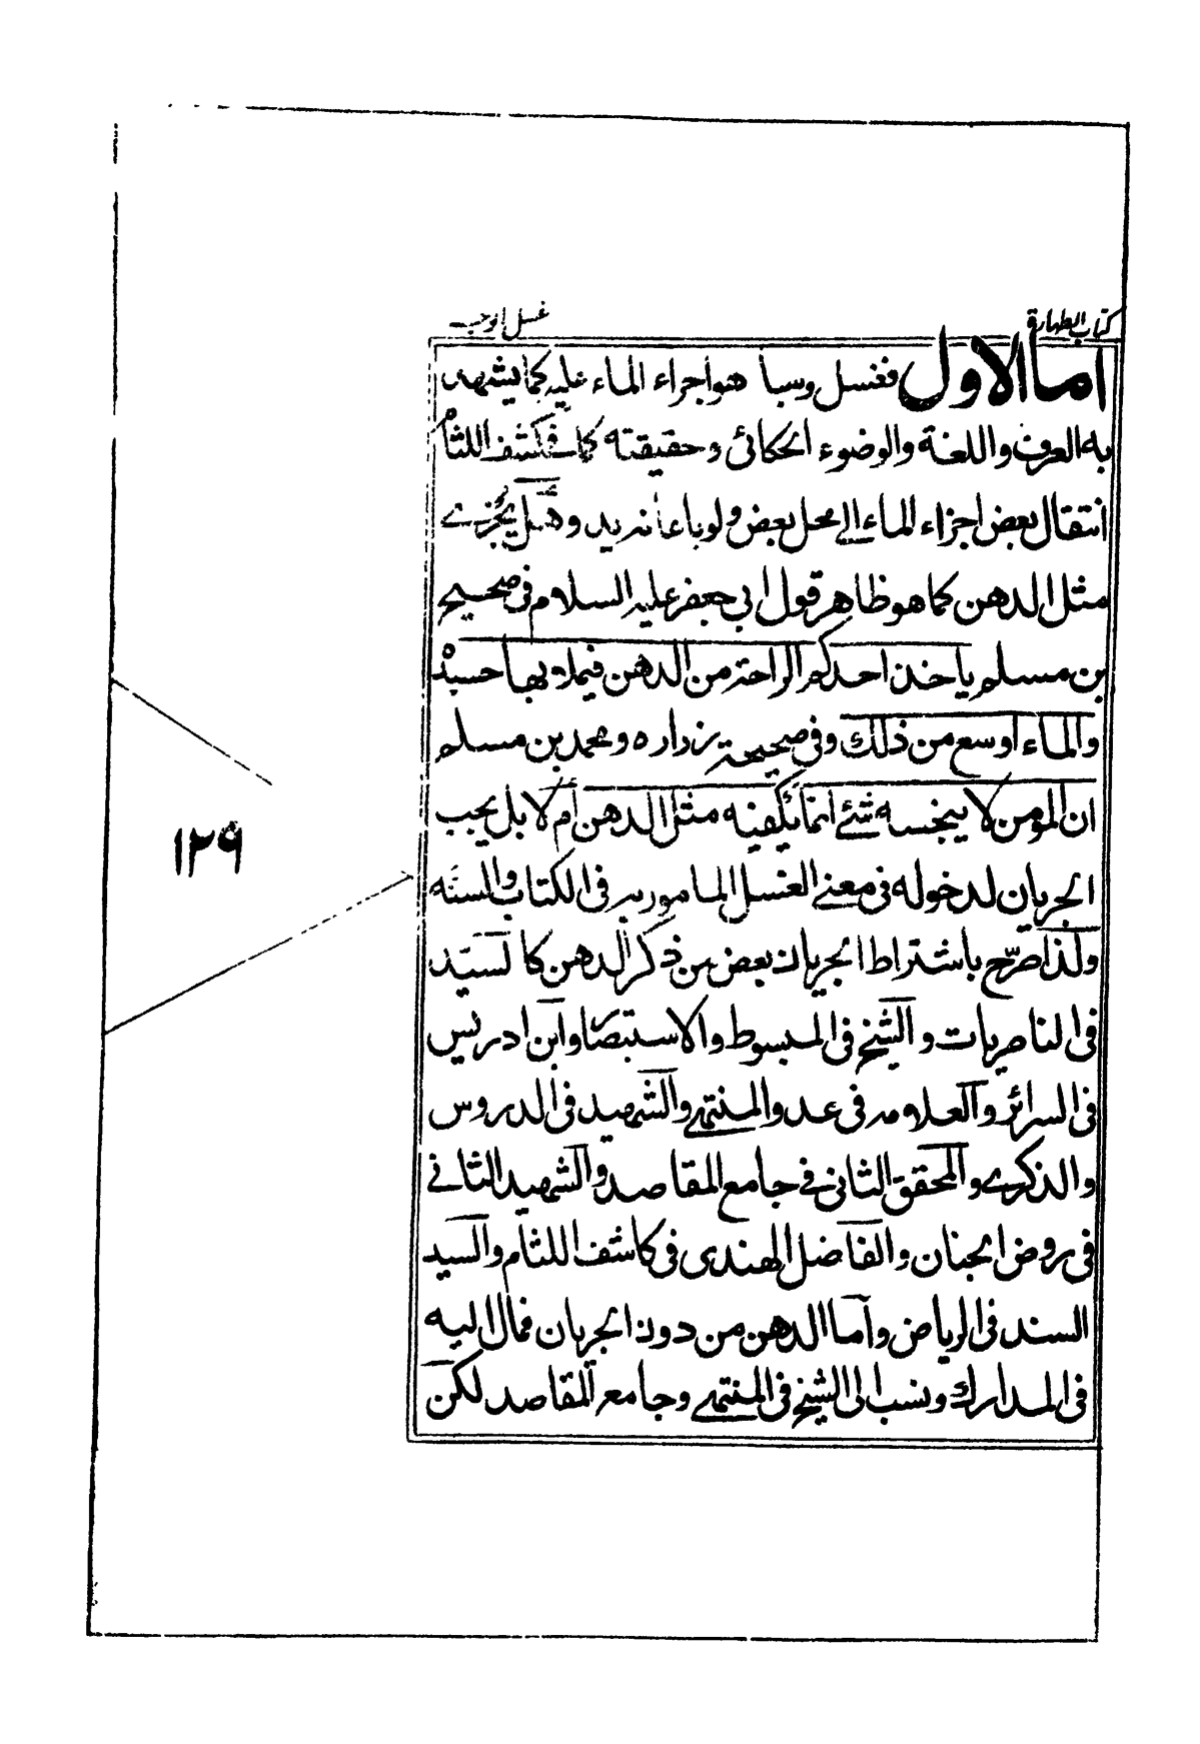 كتاب الطهارة
غسل الوجه
اما الاول فغسل وسبا هو اجراء الماء عليه كما يشهد
به العرف واللغة والوضوء الحكائى وحقيقته كما فى كشف اللثام
انتقال بعض اجزاء الماء الى محل بعض ولو باعانة يد وهل يجزے
مثل الدهن كما هو ظاهر قول ابى جعفر عليه السلام فى صحيح
بن مسلم ياخذ احدكم الراحة من الدهن فيملاء بها جسده
والماء اوسع من ذلك وفى صحيحة زراره ومحمد بن مسلم
ان المومن لا ينجسه شئے انما يكفيه مثل الدهن ام لا بل يجب
الجريان لدخوله فى معنے الغسل المامور به فى الكتاب والسنه
ولذا صرّح باشتراط الجريان بعض من ذكر الدهن كالسيّد
فى الناصريات والشيخ فى المبسوط والاستبصار وابن ادريس
فى السرائر والعلامه فى عد والمنتهے والشهيد فى الدروس
والذكرے والمحقق الثانى فے جامع المقاصد والشهيد الثانے
فى روض الجنان والفاضل الهندى فى كاشف اللثام والسيد
السند فى الرياض واما الدهن من دون الجريان فمال اليه
فى المدارك ونسب الى الشيخ فى المنتهے وجامع المقاصد لكن
١٢٩